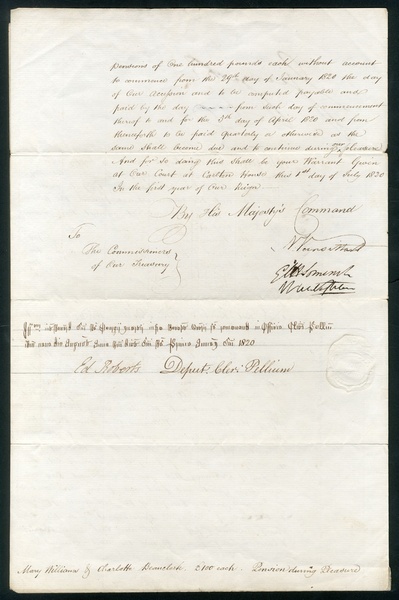 Pensions of One hundred pounds each without account
to commence from the 29th day of January 1820 the day
of Our Accession and to be computed payable and
paid by the day from such day of commencement
thereof to and for the 5th day of April 1820 and from
thenceforth to be paid quarterly or otherwise as the
same shall become due and to continue during our pleasure
And for so doing this shall be your Warrant Given
at Our Court at Carlton House this 1st day of July 1820
In the first year of Our Reign
By His Majesty's Command
To
The Commissioners
of Our Treasury
N Vansittart
1820
Ed Roberts Deputy Cleri Pellium
Mary Williams & Charlotte Beauclerk £100 each Pension during Pleasure